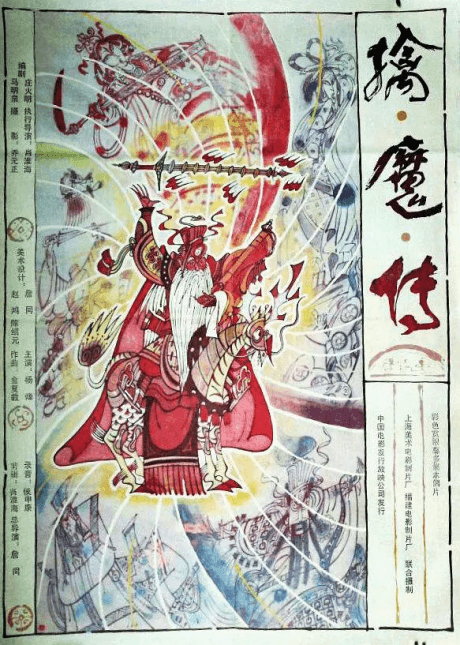 擒·魔·传
彩色宽银幕多集木偶片
上海美术电影制片厂 福建电影制片厂 联合摄制
中国电影发行放映公司发行
编剧
庄火明 执行导演：肖淮海
马明泉 摄 影：乔元正
美术设计：詹 同 主演：杨 烽
赵 鸿 陈绍元 作曲：金复载
录音：侯申康
剪辑：肖淮海 总导演：詹 同